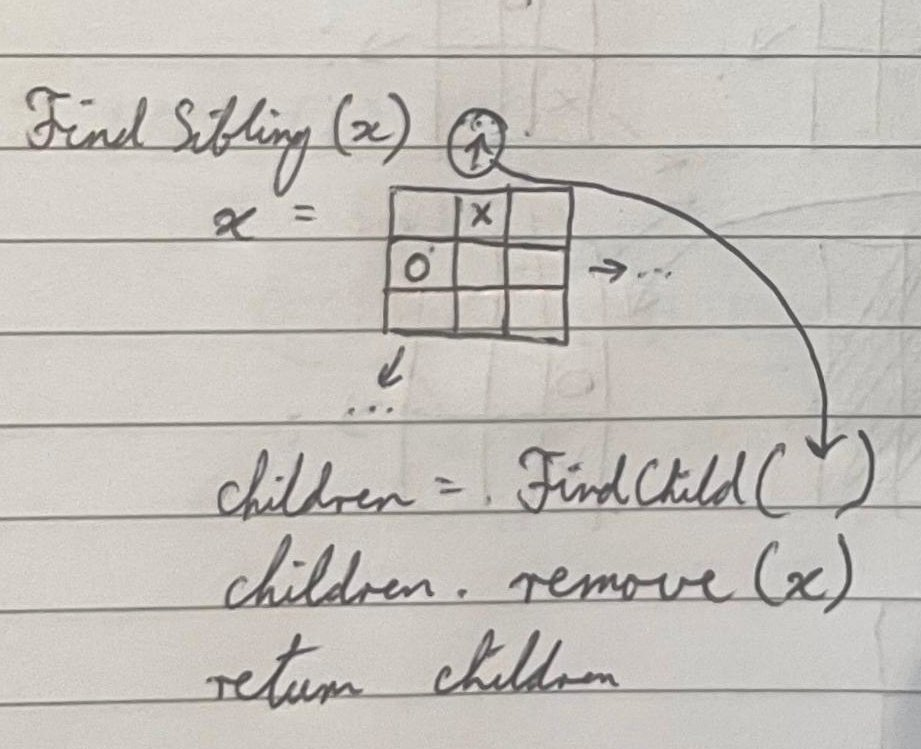 Find Sibling (x)
x =
X
O
→ ...
...
children = . FindChild( )
children . remove (x)
return children